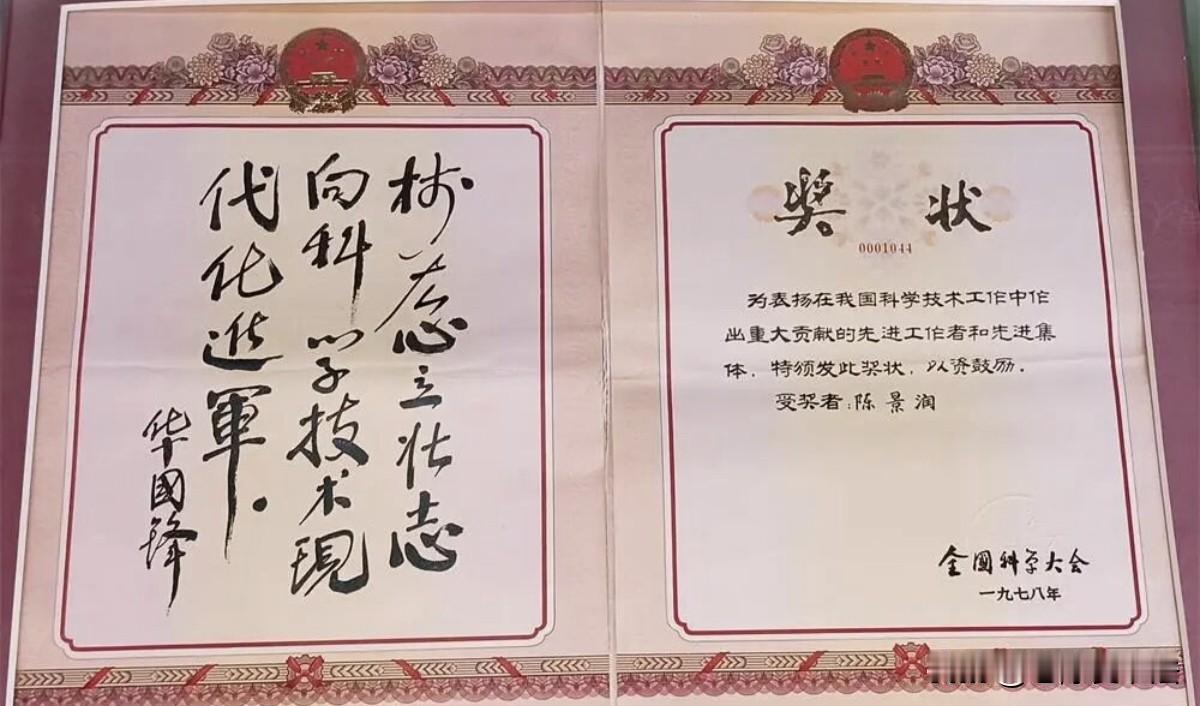 树雄心立壮志
向科学技术現
代化進軍。
华國锋
奖状
0001044
为表扬在我国科学技术工作中作
出重大贡献的先进工作者和先进集
体，特颁发此奖状，以资鼓励。
受奖者：陈景润
全国科学大会
一九七八年